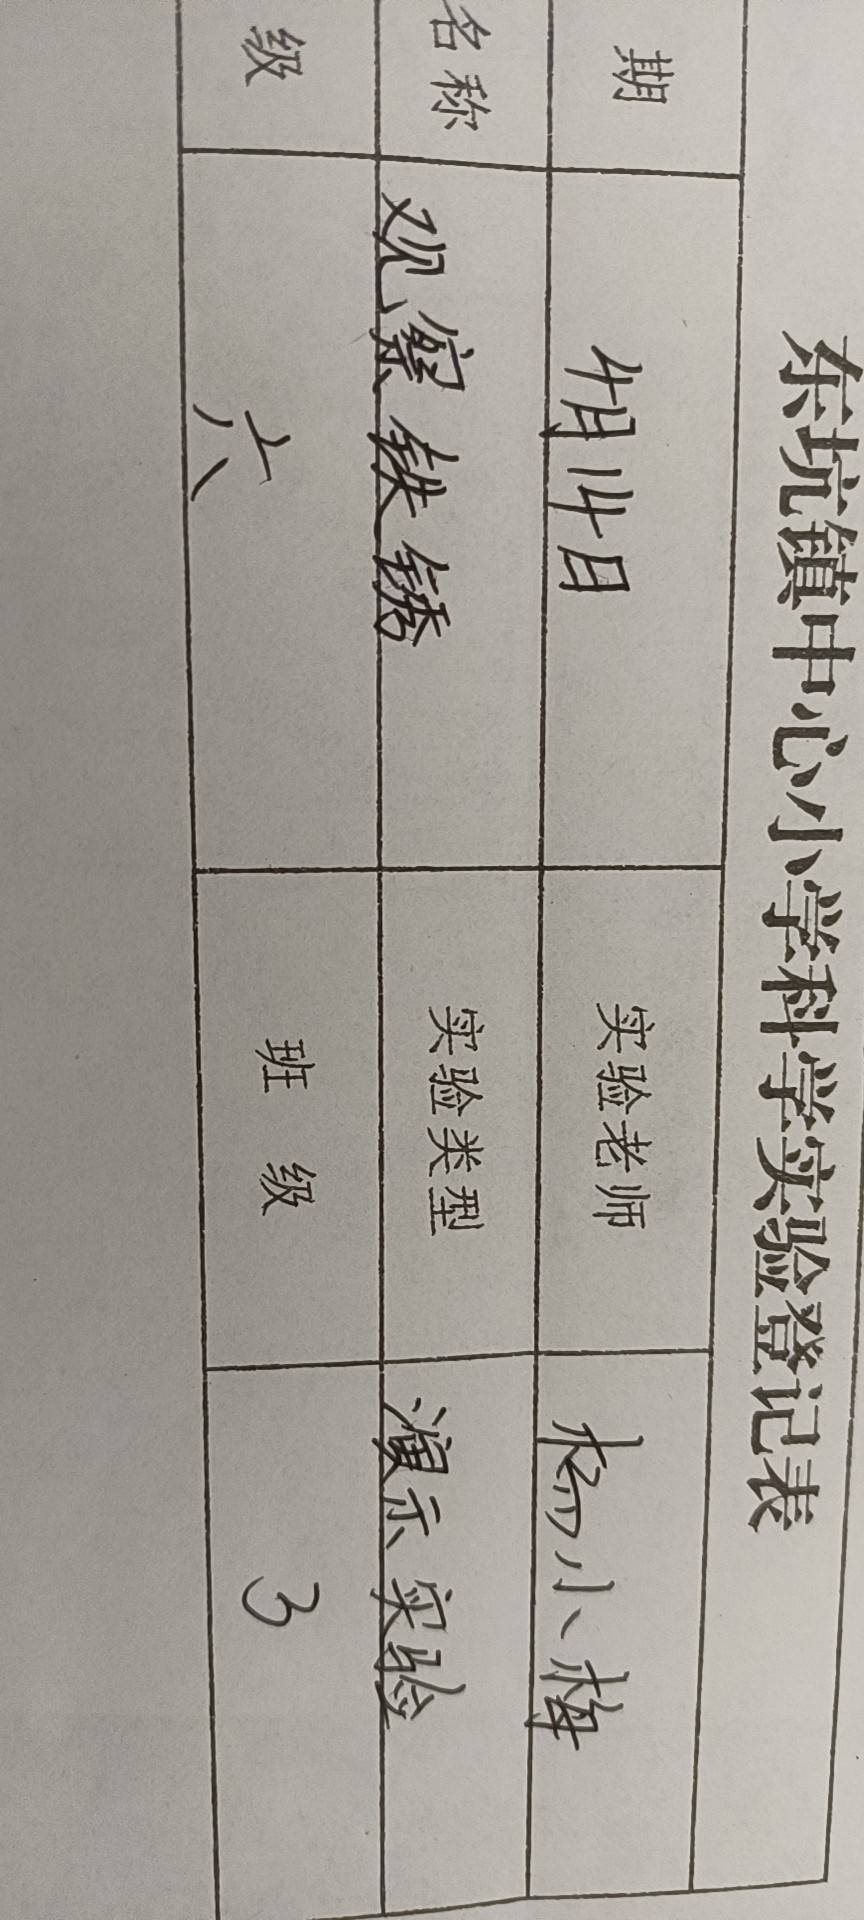 东坑镇中心小学科学实验登记表
期 4月14日 实验老师 杨小梅
名称 观察铁锈 实验类型 演示实验
级 六 班级 3